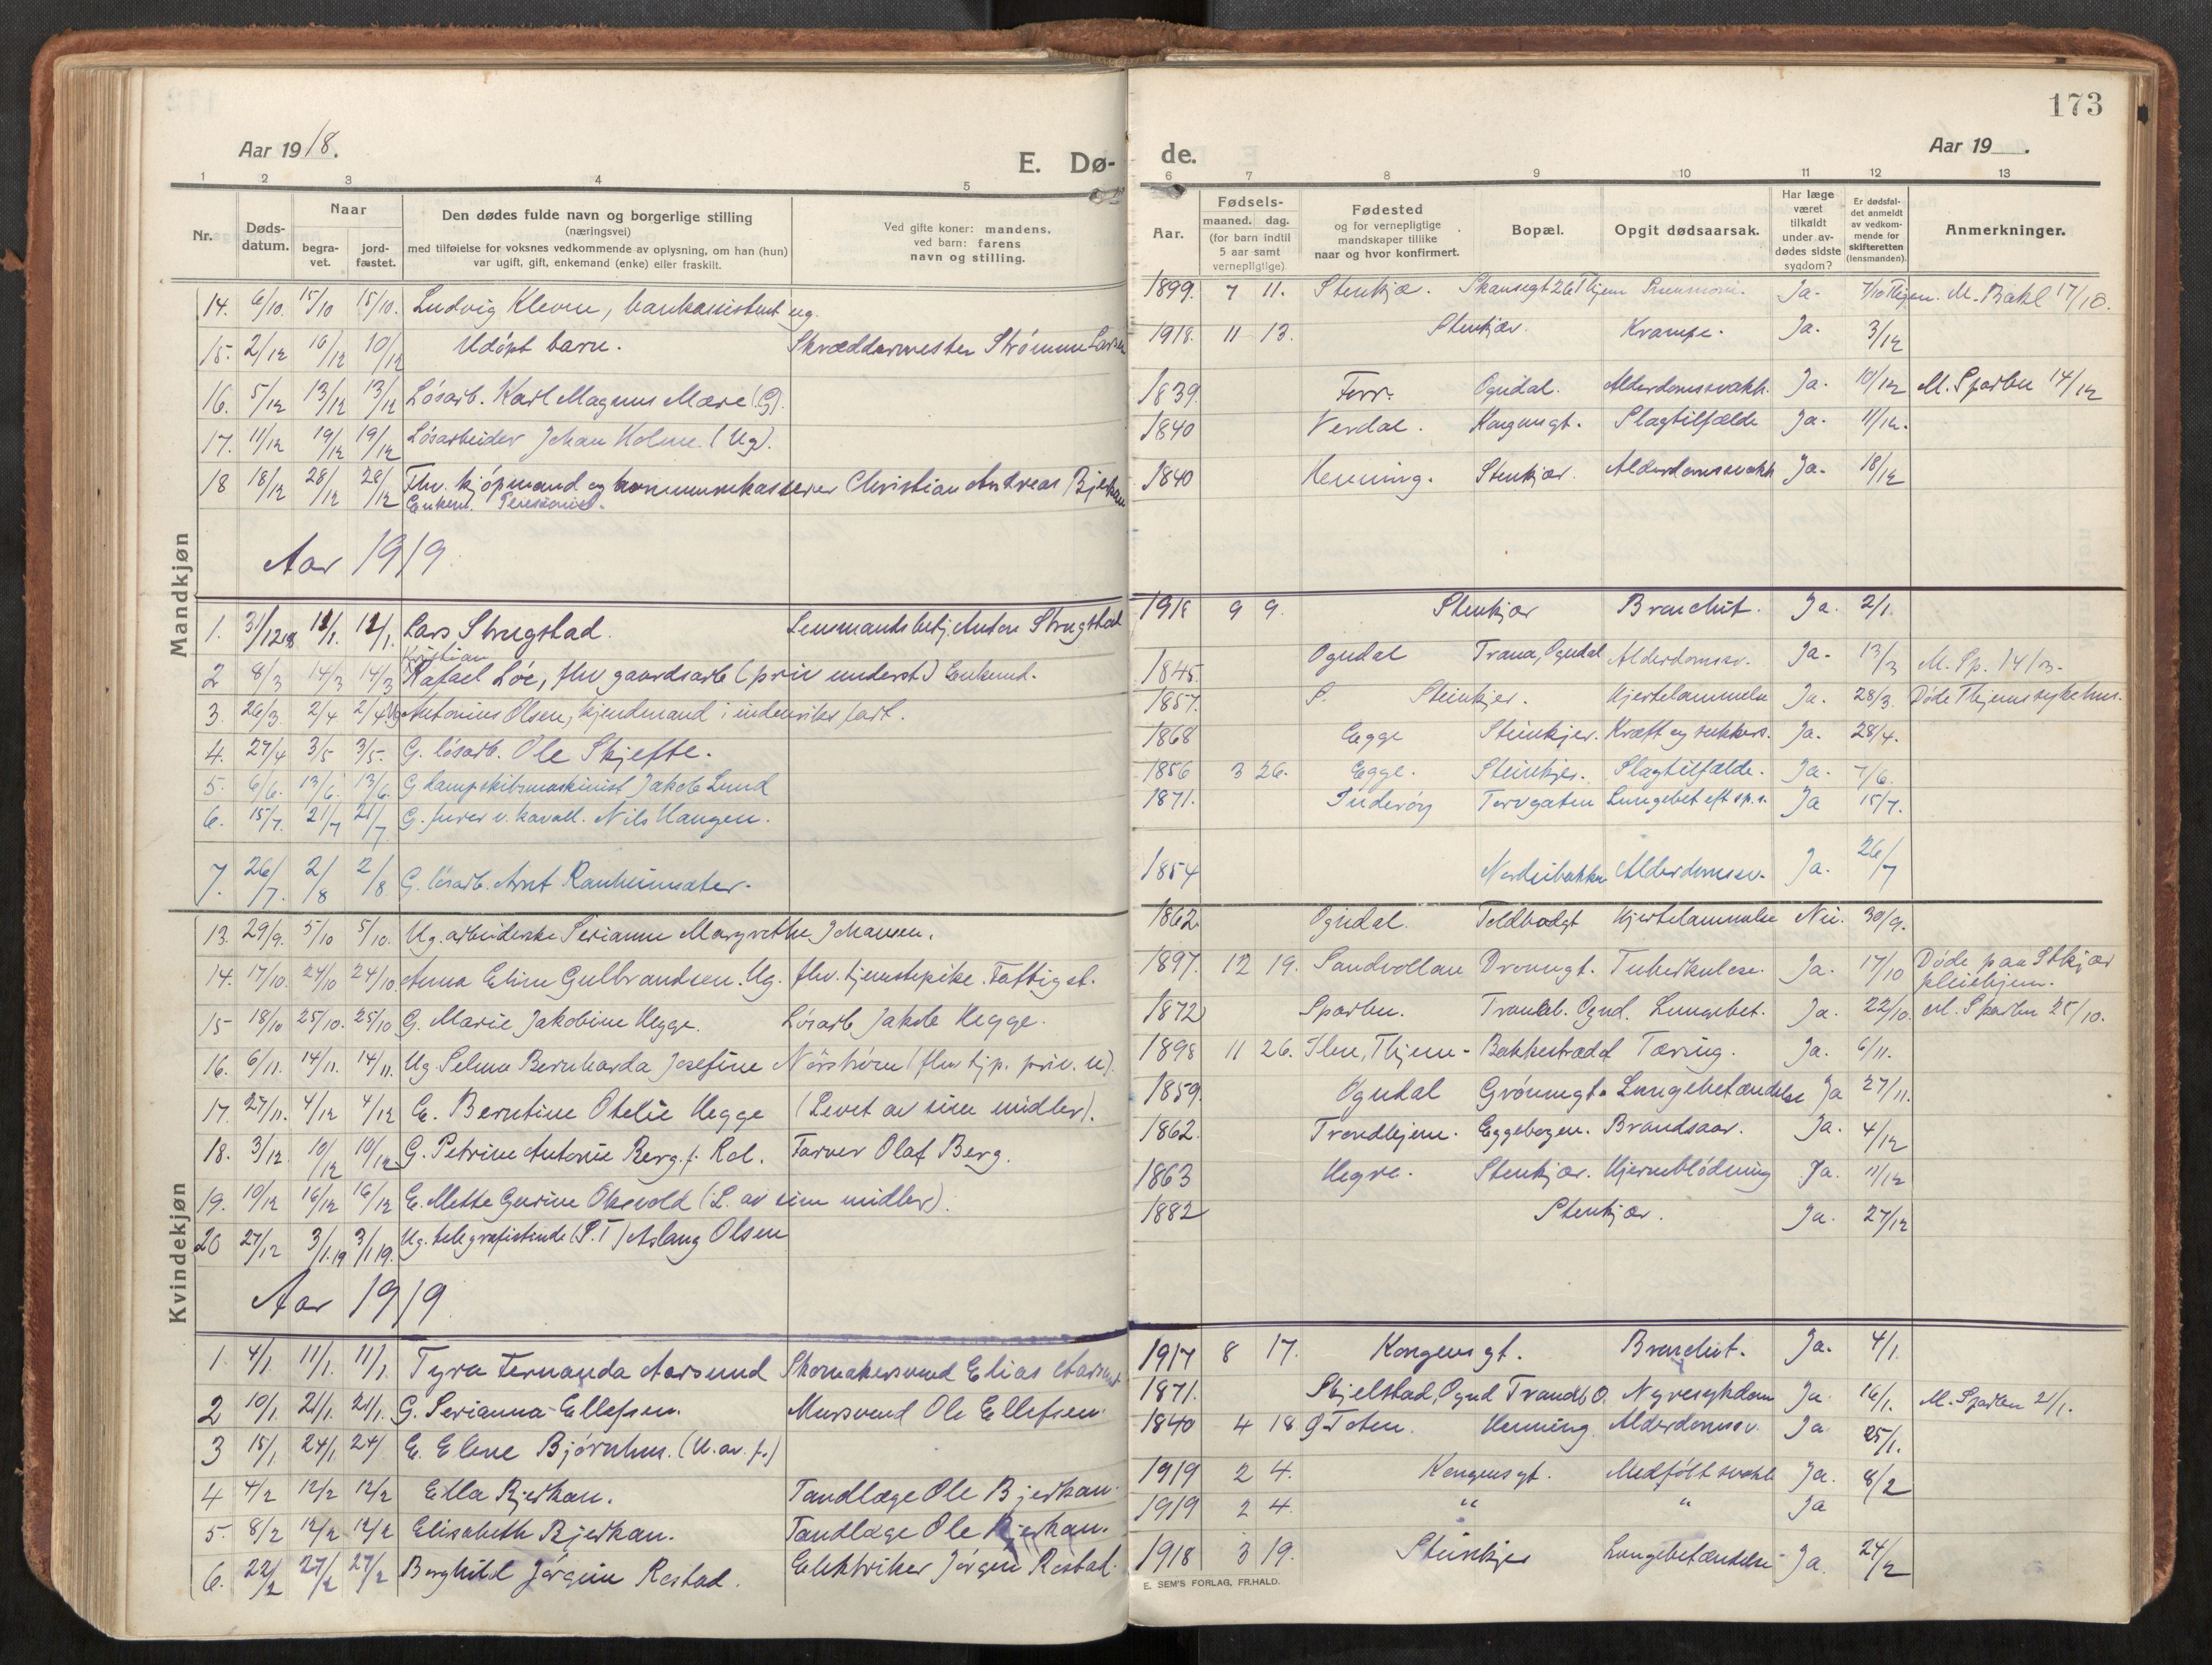 173
Aar 1918.
E. Dø-
de.
Aar 19 .
1 2 3 4 5 6 7 8 9 10 11 12 13
Nr.
Døds-
datum.
Naar
begra-
vet.
jord-
fæstet.
Den dødes fulde navn og borgerlige stilling
(næringsvei)
med tilføielse for voksnes vedkommende av oplysning, om han (hun)
var ugift, gift, enkemand (enke) eller fraskilt.
Ved gifte koner: mandens,
ved barn: farens
navn og stilling.
Aar.
Fødsels-
maaned. dag.
(for barn indtil
5 aar samt
vernepligtige)
Fødested
og for vernepligtige
mandskaper tillike
naar og hvor konfirmert.
Bopæl.
Opgit dødsaarsak.
Har læge
været
tilkaldt
under av-
dødes sidste
sygdom?
Er dødsfal-
det anmeldt
av vedkom-
mende for
skifteretten
(lensmanden).
Anmerkninger.
Mandkjøn
14. 6/10. 15/10 15/10. Ludvig Klevn, bankassistent ug. 1899. 7 11. Stenkjær. Skansegt 26 Thjem Pneumoni. Ja. M. Bakl 17/10.
15. 2/12 10/12 10/12 Udøpt barn. Skræddermester Strømme Larsen 1918. 11 13. Stenkjær. Krampe. Ja. 3/12
16. 5/12 13/12 13/12 Løsarb. Karl Magnus Mære (G). 1839. Ogndal. Alderdomssvakh. Ja. 10/12 M. Sparbu 14/12
17. 11/12 19/12 19/12 Løsarbeider Johan Holme. (Ug). 1840 Verdal. Kongensgt. Slagtilfælde Ja. 11/12.
18 18/12 28/12 28/12 Fhv. kjøpmand og kommunekasserer Christian Andreas Bjerkan 1840 Henning. Stenkjær. Alderdomssvakh Ja. 18/12
Enkem. Pensionist.
Aar 1919
1. 31/12 18 12/1. 12/1. Lars Strugstad. Lensmandsbetj. Anton Strugstad 1918 9 9. Stenkjær Bronchit. Ja. 2/1.
Kristian
2 8/3 14/3 14/3 Rafael Løe, fhv gaardsarb (priv underst) Enkemd. 1845. Ogndal Trana, Ogndal Alderdomssv. Ja. 13/3 M. Sp. 14/3.
3. 26/3. 2/4 2/4 Ug Antonius Olsen, kjendmand i indenriks fart. 1857. S. Steinkjer. Hjertelammelse Ja. 28/3. Døde Thjems sykehus.
4. 27/4 3/5 3/5. G. løsarb. Ole Skjefte. 1868 Egge Steinkjer. Kræft og sukkers. Ja. 28/4.
5. 6/6. 13/6. 13/6. G dampskibsmaskinist Jakob Lund 1856 3 26. Egge. Steinkjer. Slagtilfælde. Ja. 7/6.
6. 15/7. 21/7 21/7 G. furer v. kavall. Nils Haugen. 1871. Inderøy Torvgaten Lungebet eft sp.s. Ja 15/7.
7. 26/7. 2/8 2/8 G. løsarb. Arnt Ranheimsæter. 1854 Nordsibakken Alderdomssv. Ja. 26/7
Kvindekjøn
13. 29/9. 5/10 5/10. Ug. arbeiderske Serianne Margrethe Johansen. 1862 Ogndal. Toldbodgt Hjertelammelse Nei. 30/9.
14. 17/10. 24/10 24/10 Anna Eline Gulbrandsen. Ug. fhv. tjenestepike. Fattigst. 1897. 12 19. Sandvollan Dronngt. Tuberkulose. Ja. 17/10 Døde paa Stkjær
pleiehjem.
15 18/10 25/10. 25/10 G. Marie Jakobine Hegge. Løsarb Jakob Hegge. 1872 Sparbu. Tranabl. Ognd. Lungebet. Ja. 22/10. M. Sparbu 25/10.
16. 6/11. 14/11. 14/11. Ug. Selma Bernharda Josefine (fhv tjp. priv. u). 1898 11 26. Ilen, Thjem. Bakkestrædet Tæring. Ja. 6/11.
17. 27/11. 4/12 4/12 E. Berntine Otelie Hegge (Levet av sine midler). 1859. Ogndal Grønnegt. Lungebetændelse Ja 27/11.
18. 3/12. 10/12 10/12 G. Petrine Antonie Berg f. Rol. Farver Olaf Berg. 1862. Trondhjem. Eggebogen. Brandsaar. Ja. 4/12
19. 10/12 16/12 16/12 E. Mette Gurine Oksvold (L. av sine midler). 1863 Hegre. Stenkjær. Hjerneblødning Ja. 11/12
20 27/12 3/1.19 3/1 19. Ug. telegrafistinde (P.T) Aslaug Olsen 1882 Stenkjær. Ja. 27/12
Aar 1919.
1. 4/1 11/1 11/1 Tyra Fernanda Aarsund Skomakersvend Elias Aarsund 1917 8 17. Kongensgt. Bronchit. Ja. 4/1.
2 10/1 21/1. 21/1. G. Serianna Ellefsen. Mursvend Ole Ellefsen. 1871. Skjelstad, Ognd Tranabl. O. Nyresykdom Ja. 16/1. M. Sparbu 21/1.
3 15/1 24/1 24/ E. Elene Bjørnhus. (U. av. f.) 1840 4 18 Ø-Toten. Henning Alderdomssv. Ja 25/1.
4 4/2 12/2 12/2 Ella Bjerkan. Tandlæge Ole Bjerkan. 1919 2 4. Kongensgt. Medfødt svakh Ja. 8/2
5. 8/2 12/2 12/2 Elisabeth Bjerkan. Tandlæge Ole Bjerkan. 1919 2 4. " " Ja
6. 22/2 27/2 27/2 Borghild Jørgine Rostad. Elektriker Jørgen Rostad. 1918 3 19. Steinkjer Lungebetændelse Ja. 24/2
E. SEM'S FORLAG, FR.HALD.